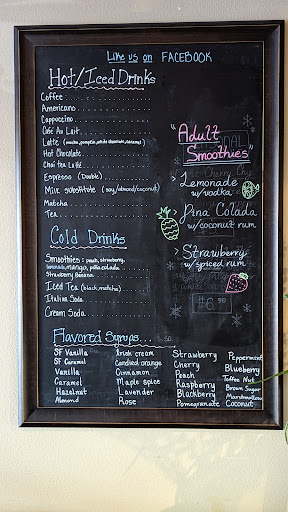 Like us on FACEBOOK
Hot/Iced Drinks
Coffee
Americano
Cappuccino
Café Au Lait
Latte (mocha, pumpkin, white chocolate, caramel)
Hot Chocolate
Chai tea Latte
Espresso (Double)
Milk substitute (soy/almond/coconut)
Matcha
Tea
Cold Drinks
Smoothies: peach, strawberry,
lemonade, mango, piña colada
Strawberry Banana
Iced Tea (black, matcha)
Italian Soda
Cream Soda
"Adult
Smoothies"
> Lemonade
w/vodka
> Pina Colada
w/coconut rum
> Strawberry
w/spiced rum
Flavored Syrups .50
SF Vanilla
SF Caramel
Vanilla
Caramel
Hazelnut
Almond
Irish cream
Candied orange
Cinnamon
Maple spice
Lavender
Rose
Strawberry
Cherry
Peach
Raspberry
Blackberry
Pomegranate
Peppermint
Blueberry
Toffee Nut
Brown Sugar
Marshmallow
Coconut